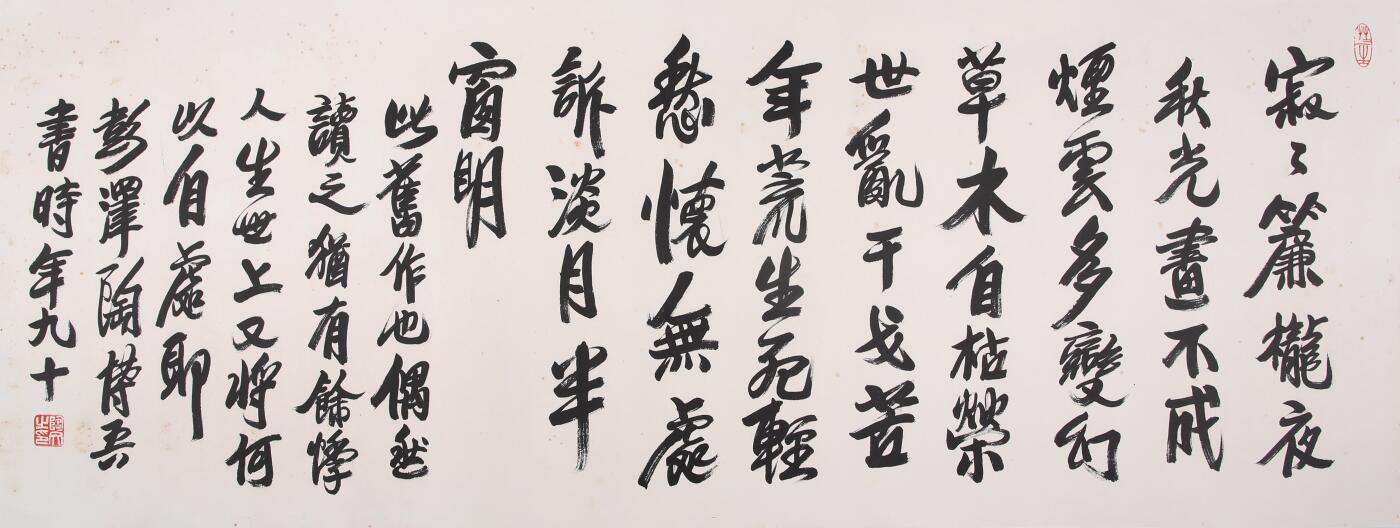 寂〻簾櫳夜
秋光畫不成
煙雲多變幻
草木自枯榮
世亂干戈苦
年荒生死輕
愁懷無處
訴淡月半
窗明
此舊作也偶然
讀之猶有餘悸
人生世上又將何
以自處耶
彭澤陶博吾
書時年九十